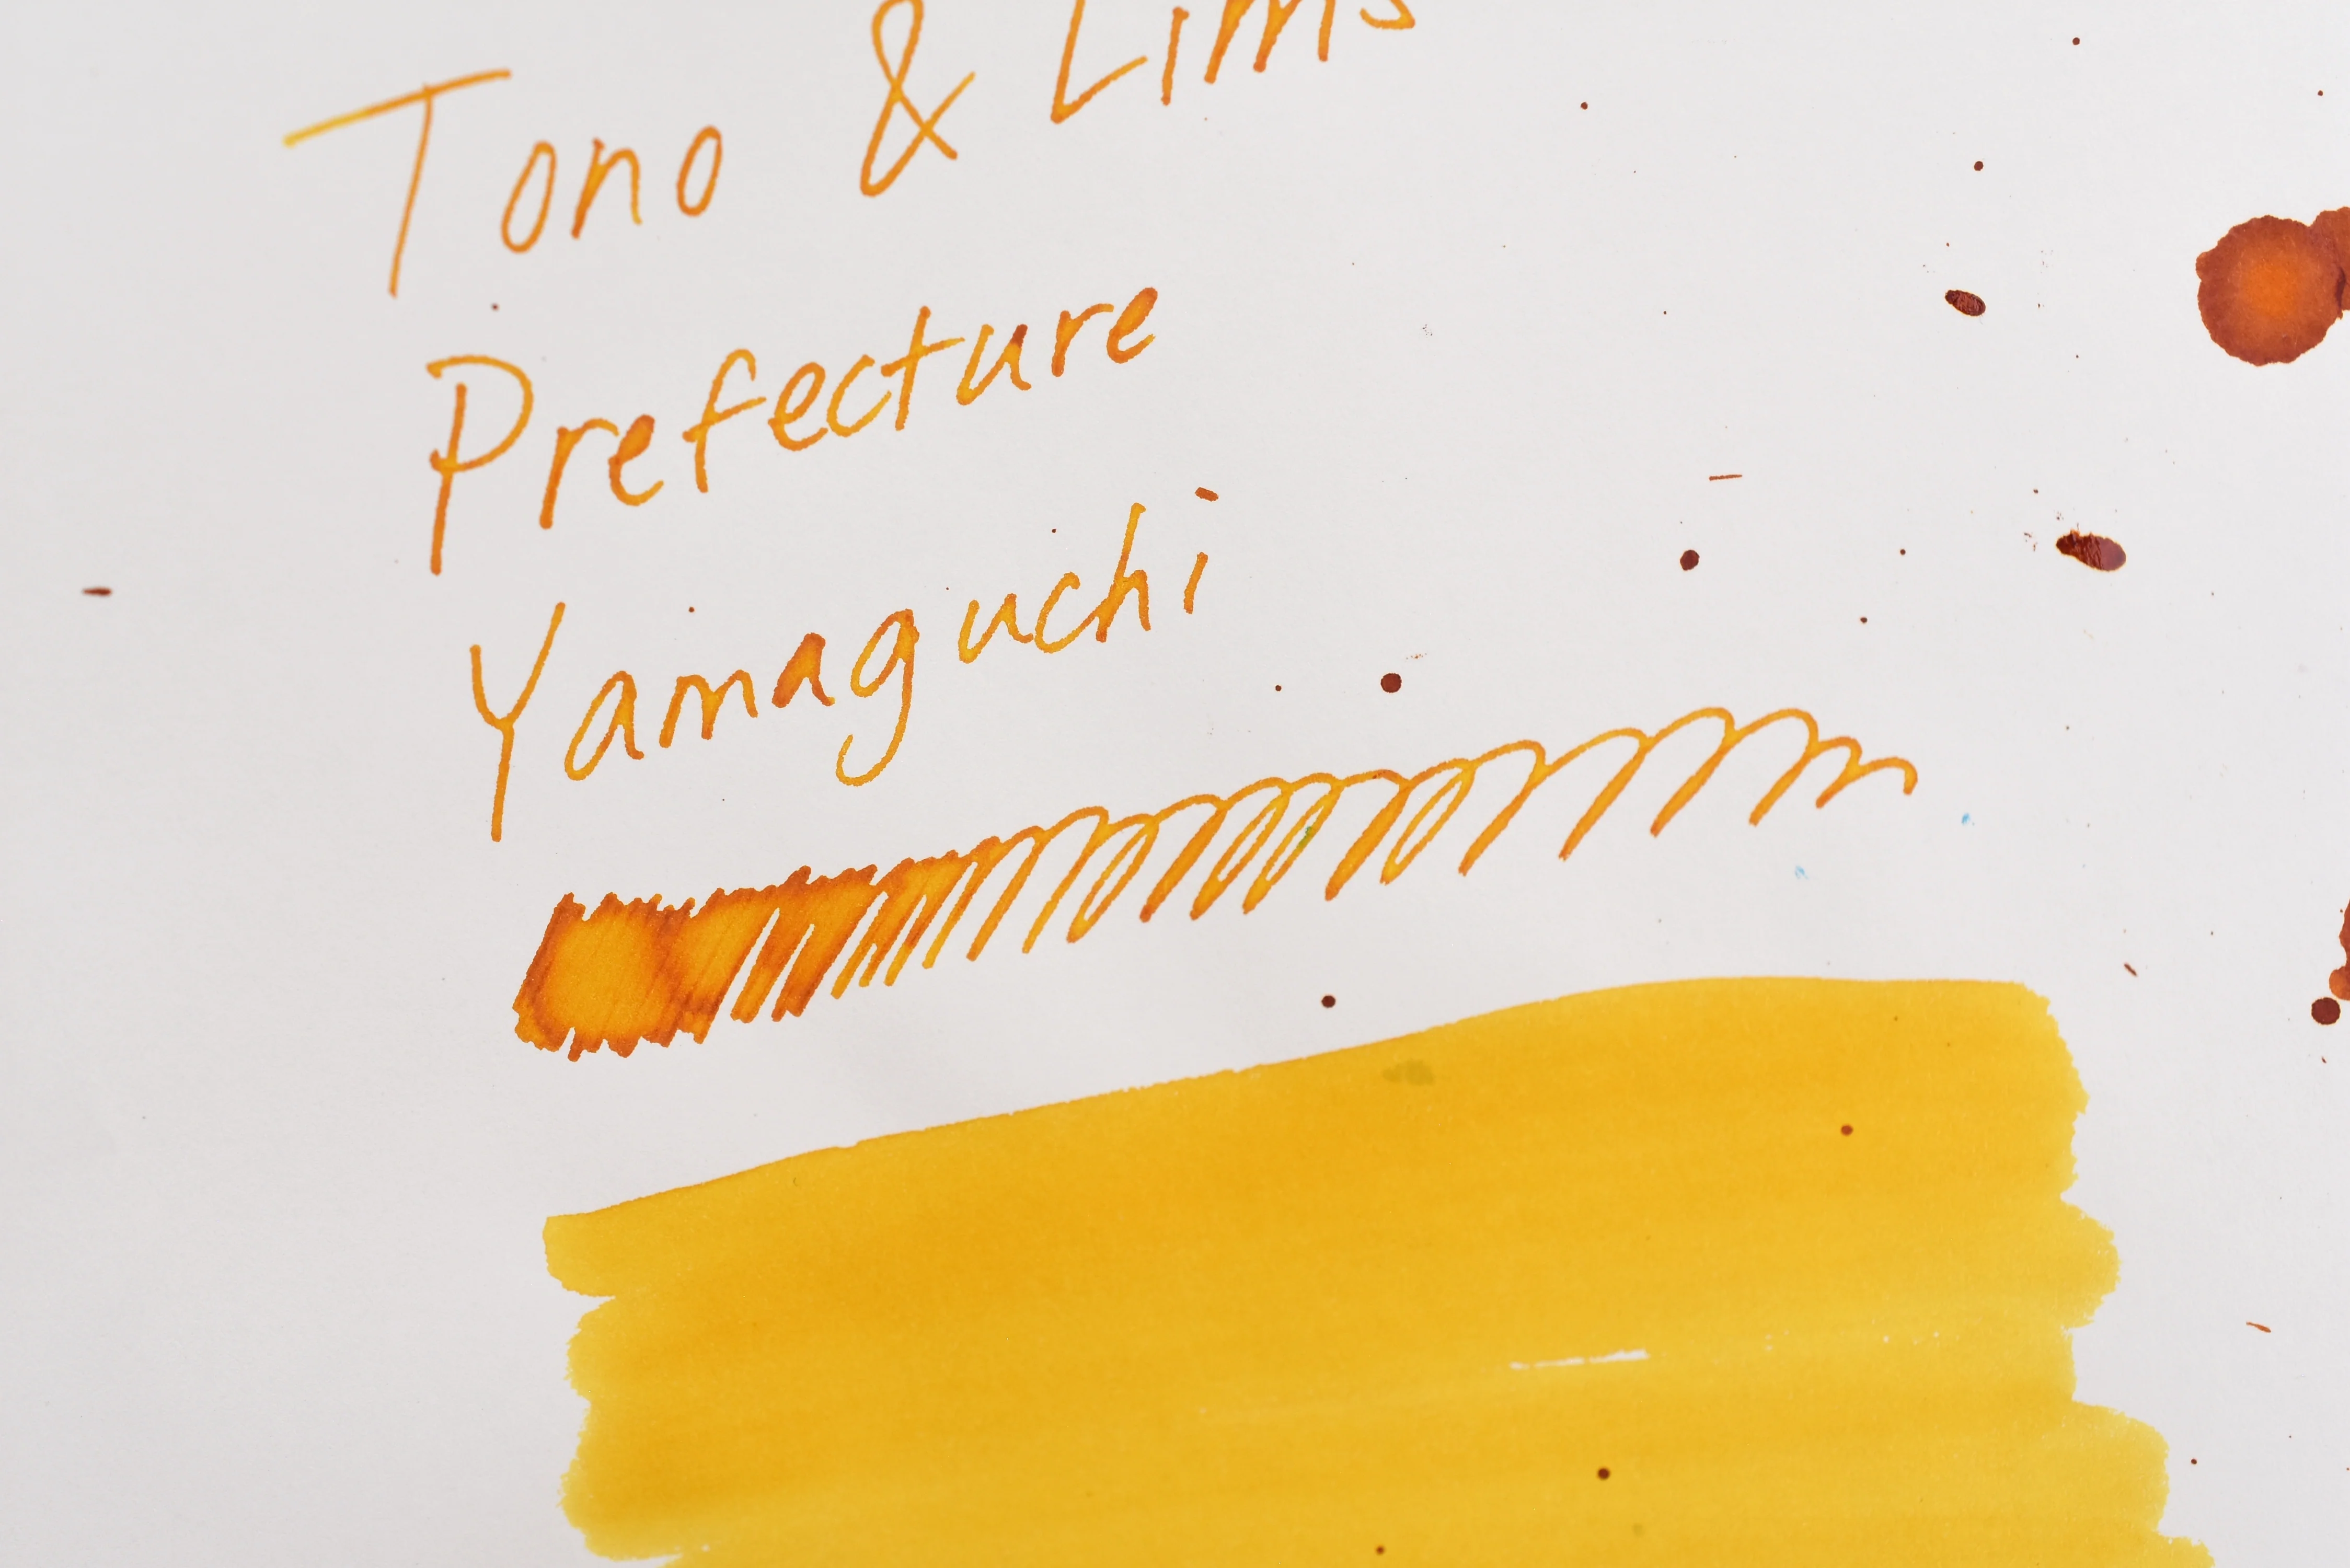 Tono & Lims
Prefecture
Yamaguchi